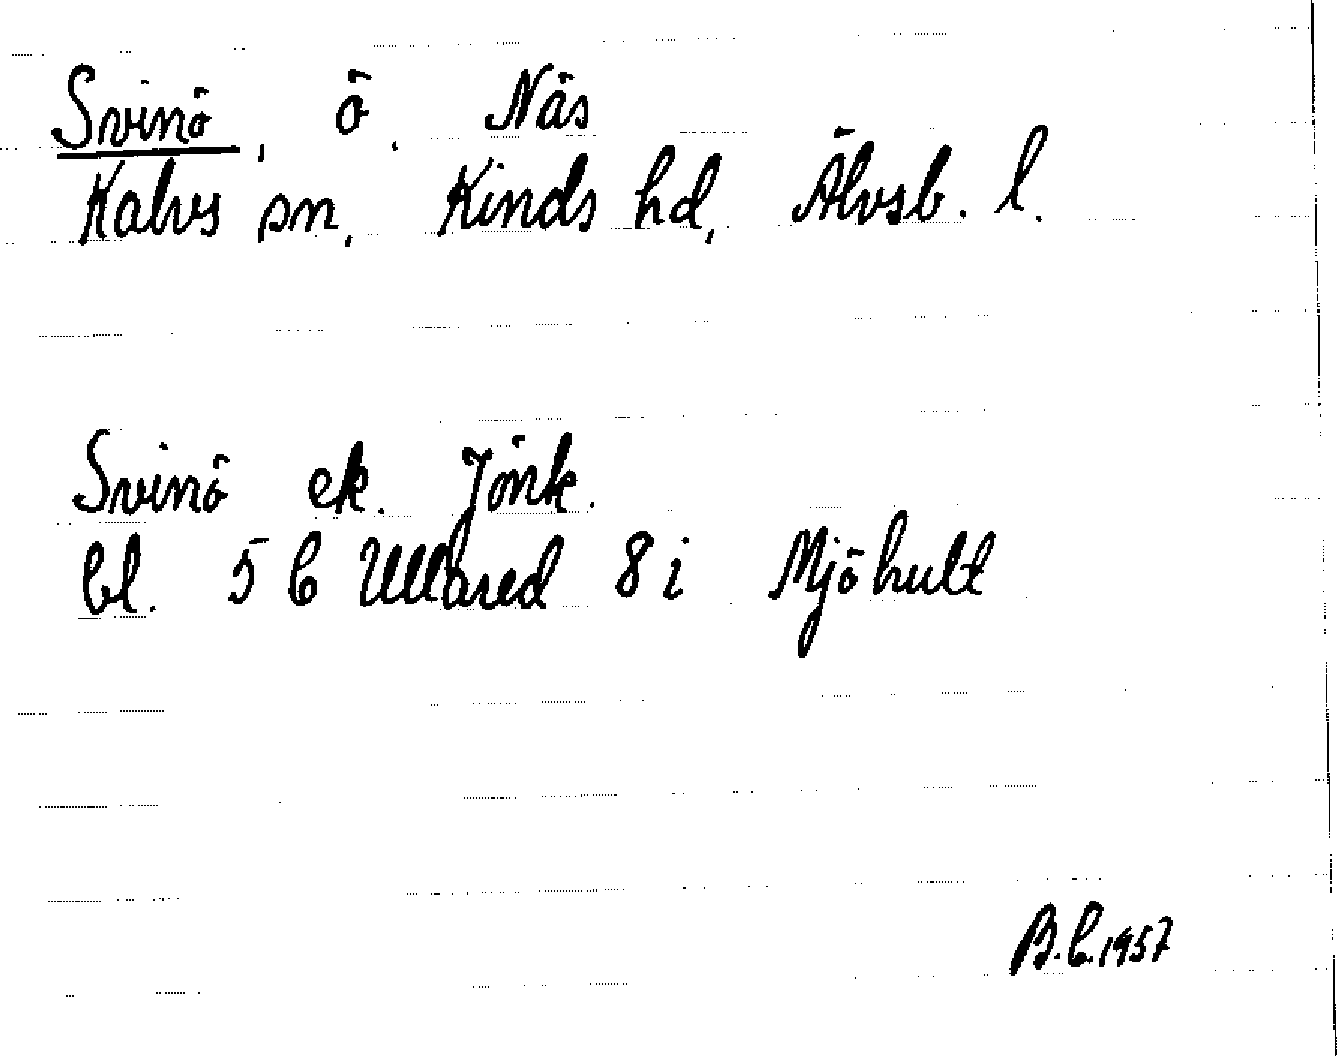 Svinö, ö. Näs
Kalvs sn, Kinds hd, Älvsb. l.
Svinö ek. Jönk.
bl. 5 C Ullared 8 i Mjöhult
B.C. 1957